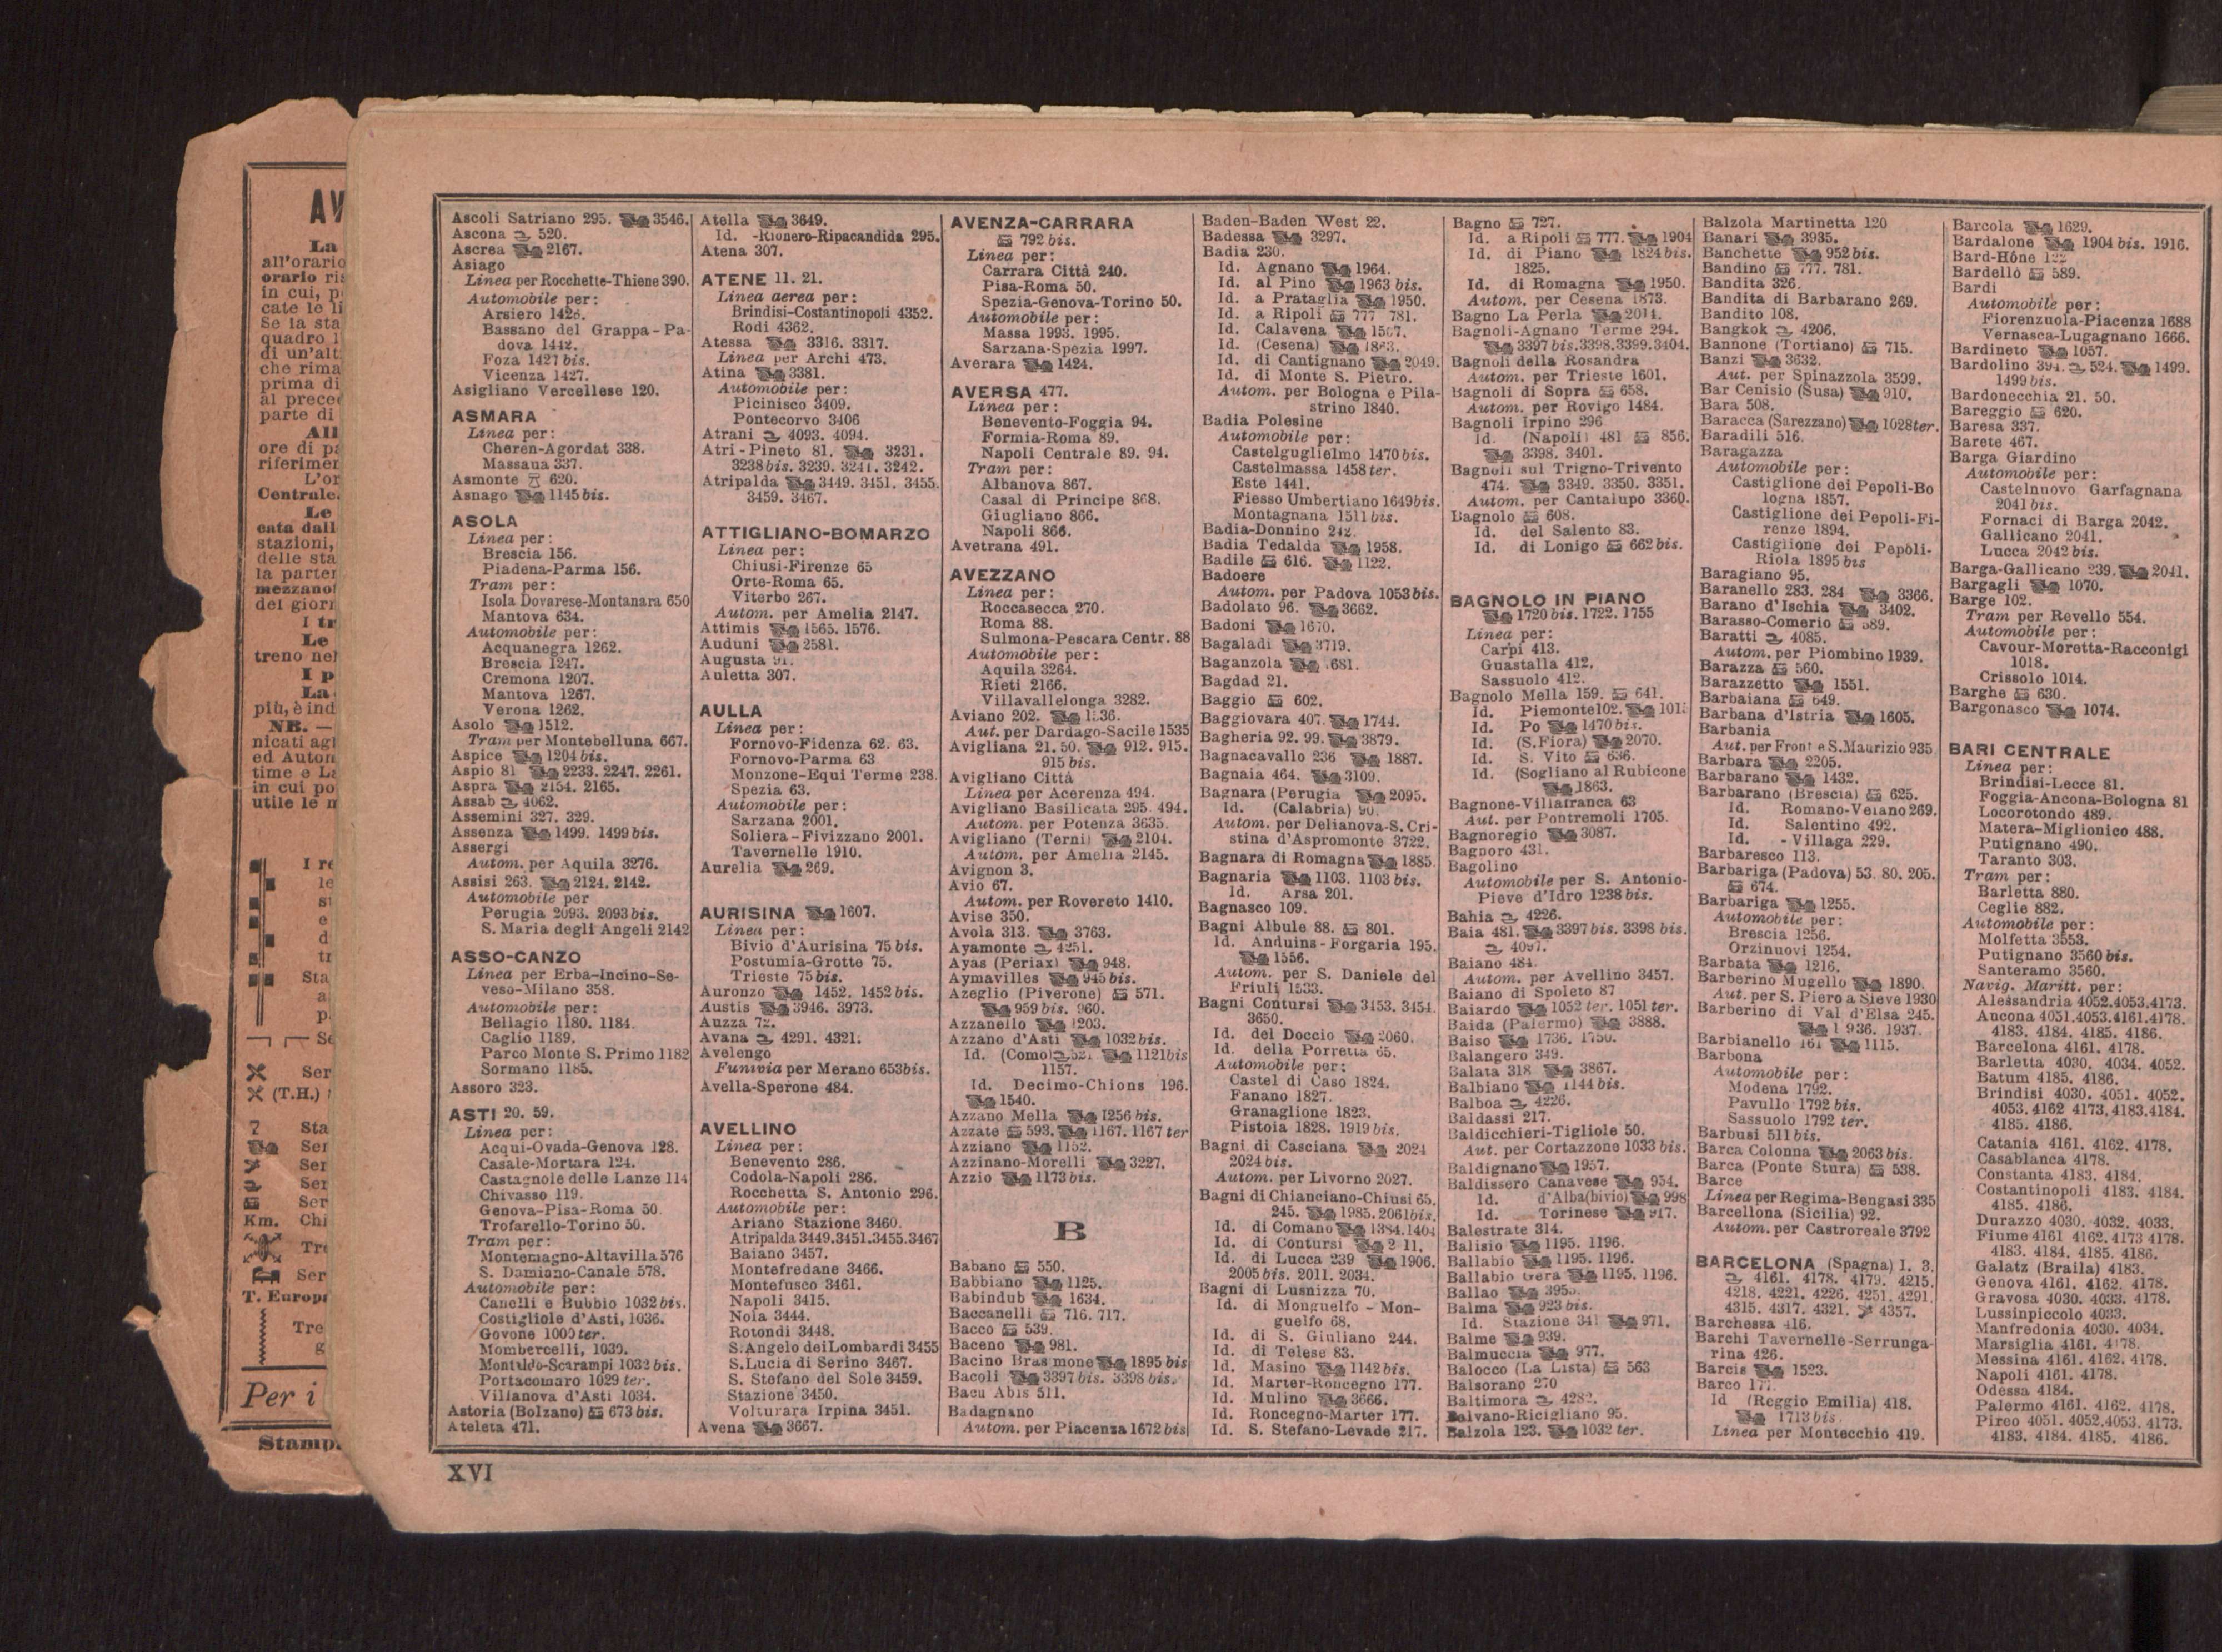 AV
La
all'orario
orario ris
in cui, p
cate le li
Se la sta
quadro 1
di un'alt
che rima
prima di
al prece
parte di
All
ore di pa
riferimen
L'or
Centrale.
Le
cata dall
stazioni,
delle sta
la parten
mezzanot
dei giorn
I tr
Le
treno nel
I p
La
più, è ind
NB. —
nicati agl
ed Auton
time e La
in cui po
utile le n
Km.
(T.H.)
T. Europ
Per i
Stamp.
Ascoli Satriano 295. 3546.
Ascona 520.
Ascrea 2167.
Asiago
Linea per Rocchette-Thiene 390.
Automobile per:
Arsiero 1428.
Bassano del Grappa-Pa-
dova 1442.
Foza 1427 bis.
Vicenza 1427.
Asigliano Vercellese 120.
ASMARA
Linea per:
Cheren-Agordat 338.
Massaua 337.
Asmonte 620.
Asnago 1145 bis.
ASOLA
Linea per:
Brescia 156.
Piadena-Parma 156.
Tram per:
Isola Dovarese-Montanara 650
Mantova 634.
Automobile per:
Acquanegra 1262.
Brescia 1247.
Cremona 1207.
Mantova 1267.
Verona 1262.
Asolo 1512.
Tram per Montebelluna 667.
Aspice 1204 bis.
Aspio 81 2233. 2247. 2261.
Aspra 2154. 2165.
Assab 4062.
Assemini 327. 329.
Assenza 1499. 1499 bis.
Assergi
Autom. per Aquila 3276.
Assisi 263. 2124. 2142.
Automobile per
Perugia 2093. 2093 bis.
S. Maria degli Angeli 2142
ASSO-CANZO
Linea per Erba-Incino-Se-
veso-Milano 358.
Automobile per:
Bellagio 1180. 1184.
Caglio 1189.
Parco Monte S. Primo 1182
Sormano 1185.
Assoro 323.
ASTI 20. 59.
Linea per:
Acqui-Ovada-Genova 128.
Casale-Mortara 124.
Castagnole delle Lanze 114
Chivasso 119.
Genova-Pisa-Roma 50.
Trofarello-Torino 50.
Tram per:
Montemagno-Altavilla 576
S. Damiano-Canale 578.
Automobile per:
Canelli e Bubbio 1032 bis.
Costigliole d'Asti, 1036.
Govone 1000 ter.
Mombercelli, 1039.
Montaldo-Scarampi 1032 bis.
Portacomaro 1029 ter.
Villanova d'Asti 1034.
Astoria (Bolzano) 673 bis.
Ateleta 471.
Atella 3649.
Id. -Rionero-Ripacandida 295.
Atena 307.
ATENE 11. 21.
Linea aerea per:
Brindisi-Costantinopoli 4352.
Rodi 4362.
Atessa 3316. 3317.
Linea per Archi 473.
Atina 3381.
Automobile per:
Picinisco 3409.
Pontecorvo 3406
Atrani 4093. 4094.
Atri-Pineto 81. 3231.
3238 bis. 3239. 3241. 3242.
Atripalda 3449. 3451. 3455.
3459. 3467.
ATTIGLIANO-BOMARZO
Linea per:
Chiusi-Firenze 65
Orte-Roma 65.
Viterbo 267.
Autom. per Amelia 2147.
Attimis 1565. 1576.
Auduni 2581.
Augusta 91.
Auletta 307.
AULLA
Linea per:
Fornovo-Fidenza 62. 63.
Fornovo-Parma 63
Monzone-Equi Terme 238.
Spezia 63.
Automobile per:
Sarzana 2001.
Soliera-Fivizzano 2001.
Tavernelle 1910.
Aurelia 269.
AURISINA 1607.
Linea per:
Bivio d'Aurisina 75 bis.
Postumia-Grotte 75.
Trieste 75 bis.
Auronzo 1452. 1452 bis.
Austis 3946. 3973.
Auzza 72.
Avana 4291. 4321.
Avelengo
Funivia per Merano 653 bis.
Avella-Sperone 484.
AVELLINO
Linea per:
Benevento 286.
Codola-Napoli 286.
Rocchetta S. Antonio 296.
Automobile per:
Ariano Stazione 3460.
Atripalda 3449.3451.3455.3467
Baiano 3457.
Montefredane 3466.
Montefusco 3461.
Napoli 3415.
Nola 3444.
Rotondi 3448.
S. Angelo dei Lombardi 3455
S. Lucia di Serino 3467.
S. Stefano del Sole 3459.
Stazione 3450.
Volturara Irpina 3451.
Avena 3667.
AVENZA-CARRARA
792 bis.
Linea per:
Carrara Città 240.
Pisa-Roma 50.
Spezia-Genova-Torino 50.
Automobile per:
Massa 1993. 1995.
Sarzana-Spezia 1997.
Averara 1424.
AVERSA 477.
Linea per:
Benevento-Foggia 94.
Formia-Roma 89.
Napoli Centrale 89. 94.
Tram per:
Albanova 867.
Casal di Principe 868.
Giugliano 866.
Napoli 866.
Avetrana 491.
AVEZZANO
Linea per:
Roccasecca 270.
Roma 88.
Sulmona-Pescara Centr. 88
Automobile per:
Aquila 3264.
Rieti 2166.
Villavallelonga 3282.
Aviano 202. 1536.
Aut. per Dardago-Sacile 1535
Avigliana 21. 50. 912. 915.
915 bis.
Avigliano Città
Linea per Acerenza 494.
Avigliano Basilicata 295. 494.
Autom. per Potenza 3635.
Avigliano (Terni) 2104.
Autom. per Amelia 2145.
Avignon 3.
Avio 67.
Autom. per Rovereto 1410.
Avise 350.
Avola 313. 3763.
Ayamonte 4251.
Ayas (Periax) 948.
Aymavilles 945 bis.
Azeglio (Piverone) 571.
959 bis. 960.
Azzanello 1203.
Azzano d'Asti 1032 bis.
Id. (Como) 521 1121 bis
1157.
Id. Decimo-Chions 196.
1540.
Azzano Mella 1256 bis.
Azzate 593. 1167. 1167 ter
Azziano 1152.
Azzinano-Morelli 3227.
Azzio 1173 bis.
B
Babano 550.
Babbiano 1125.
Babindub 1634.
Baccanelli 716. 717.
Bacco 539.
Baceno 981.
Bacino Bras mone 1895 bis
Bacoli 3397 bis. 3398 bis.
Bacu Abis 511.
Badagnano
Autom. per Piacenza 1672 bis
Baden-Baden West 22.
Badessa 3297.
Badia 230.
Id. Agnano 1964.
Id. al Pino 1963 bis.
Id. a Prataglia 1950.
Id. a Ripoli 777 781.
Id. Calavena 1507.
Id. (Cesena) 1863.
Id. di Cantignano 2049.
Id. di Monte S. Pietro.
Autom. per Bologna e Pila-
strino 1840.
Badia Polesine
Automobile per:
Castelguglielmo 1470 bis.
Castelmassa 1458 ter.
Este 1441.
Fiesso Umbertiano 1649 bis.
Montagnana 1511 bis.
Badia-Donnino 242.
Badia Tedalda 1958.
Badile 616. 1122.
Badoere
Autom. per Padova 1053 bis.
Badolato 96. 3662.
Badoni 1670.
Bagaladi 3719.
Baganzola 1681.
Bagdad 21.
Baggio 602.
Baggiovara 407. 1744.
Bagheria 92. 99. 3879.
Bagnacavallo 236 1887.
Bagnaia 464. 3109.
Bagnara (Perugia 2095.
Id. (Calabria) 90.
Autom. per Delianova-S. Cri-
stina d'Aspromonte 3722.
Bagnara di Romagna 1885.
Bagnaria 1103. 1103 bis.
Id. Arsa 201.
Bagnasco 109.
Bagni Albule 88. 801.
Id. Anduins-Forgaria 195.
1556.
Autom. per S. Daniele del
Friuli 1533.
Bagni Contursi 3153. 3454.
3650.
Id. del Doccio 2060.
Id. della Porretta 65.
Automobile per:
Castel di Caso 1824.
Fanano 1827.
Granaglione 1823.
Pistoia 1828. 1919 bis.
Bagni di Casciana 2024
2024 bis.
Autom. per Livorno 2027.
Bagni di Chianciano-Chiusi 65.
245. 1985. 2061 bis.
Id. di Comano 1384. 1404
Id. di Contursi 2 11.
Id. di Lucca 239 1906.
2005 bis. 2011. 2034.
Bagni di Lusnizza 70.
Id. di Monguelfo - Mon-
guelfo 68.
Id. di S. Giuliano 244.
Id. di Telese 83.
Id. Masino 1142 bis.
Id. Marter-Roncegno 177.
Id. Mulino 3666.
Id. Roncegno-Marter 177.
Id. S. Stefano-Levade 217.
Bagno 727.
Id. a Ripoli 777. 1904
Id. di Piano 1824 bis.
1825.
Id. di Romagna 1950.
Autom. per Cesena 1873.
Bagno La Perla 2014.
Bagnoli-Agnano Terme 294.
3397 bis. 3398. 3399. 3404.
Bagnoli della Rosandra
Autom. per Trieste 1601.
Bagnoli di Sopra 658.
Autom. per Rovigo 1484.
Bagnoli Irpino 296
Id. (Napoli) 481 856.
3398. 3401.
Bagnoli sul Trigno-Trivento
474. 3349. 3350. 3351.
Autom. per Cantalupo 3360.
Bagnolo 608.
Id. del Salento 83.
Id. di Lonigo 662 bis.
BAGNOLO IN PIANO
1720 bis. 1722. 1755
Linea per:
Carpi 413.
Guastalla 412.
Sassuolo 412.
Bagnolo Mella 159. 641.
Id. Piemonte 102. 101
Id. Po 1470 bis.
Id. (S. Fiora) 2070.
Id. S. Vito 636.
Id. (Sogliano al Rubicone
1863.
Bagnone-Villafranca 63
Aut. per Pontremoli 1705.
Bagnoregio 3087.
Bagnoro 431.
Bagolino
Automobile per S. Antonio-
Pieve d'Idro 1238 bis.
Bahia 4226.
Baia 481. 3397 bis. 3398 bis.
4097.
Baiano 484.
Autom. per Avellino 3457.
Baiano di Spoleto 87
Baiardo 1052 ter. 1051 ter.
Baida (Palermo) 3888.
Baiso 1736. 1750.
Balangero 349.
Balata 318 3867.
Balbiano 1144 bis.
Balboa 4226.
Baldassi 217.
Baldicchieri-Tigliole 50.
Aut. per Cortazzone 1033 bis.
Baldignano 1957.
Baldissero Canavese 954.
Id. d'Alba (bivio) 998
Id. Torinese 917.
Balestrate 314.
Balisio 1195. 1196.
Ballabio 1195. 1196.
Ballabio Gera 1195. 1196.
Ballao 3955.
Balma 923 bis.
Id. Stazione 341 971.
Balme 939.
Balmuccia 977.
Balocco (La Lista) 563
Balsorano 270
Baltimora 4282.
Balvano-Ricigliano 95.
Balzola 123. 1032 ter.
Balzola Martinetta 120
Banari 3935.
Banchette 952 bis.
Bandino 777. 781.
Bandita 326.
Bandita di Barbarano 269.
Bandito 108.
Bangkok 4206.
Bannone (Tortiano) 715.
Banzi 3632.
Aut. per Spinazzola 3599.
Bar Cenisio (Susa) 910.
Bara 508.
Baracca (Sarezzano) 1028 ter.
Baradili 516.
Baragazza
Automobile per:
Castiglione dei Pepoli-Bo
logna 1857.
Castiglione dei Pepoli-Fi-
renze 1894.
Castiglione dei Pepoli-
Riola 1895 bis
Baragiano 95.
Baranello 283. 284 3366.
Barano d'Ischia 3402.
Barasso-Comerio 589.
Baratti 4085.
Autom. per Piombino 1939.
Barazza 560.
Barazzetto 1551.
Barbaiana 649.
Barbana d'Istria 1605.
Barbania
Aut. per Front e S. Maurizio 935
Barbara 2205.
Barbarano 1432.
Barbarano (Brescia) 625.
Id. Romano-Veiano 269.
Id. Salentino 492.
Id. - Villaga 229.
Barbaresco 113.
Barbariga (Padova) 53. 80. 205.
674.
Barbariga 1255.
Automobile per:
Brescia 1256.
Orzinuovi 1254.
Barbata 1216.
Barberino Mugello 1890.
Aut. per S. Piero a Sieve 1930
Barberino di Val d'Elsa 245.
1936. 1937.
Barbianello 161 1115.
Barbona
Automobile per:
Modena 1792.
Pavullo 1792 bis.
Sassuolo 1792 ter.
Barbusi 511 bis.
Barca Colonna 2063 bis.
Barca (Ponte Stura) 538.
Barce
Linea per Regima-Bengasi 335
Barcellona (Sicilia) 92.
Autom. per Castroreale 3792
BARCELONA (Spagna) 1. 3.
4161. 4178. 4179. 4215.
4218. 4221. 4226. 4251. 4291.
4315. 4317. 4321. 4357.
Barchessa 416.
Barchi Tavernelle-Serrunga-
rina 426.
Barcis 1523.
Barco 177.
Id (Reggio Emilia) 418.
1713 bis.
Linea per Montecchio 419.
Barcola 1629.
Bardalone 1904 bis. 1916.
Bard-Hône 122
Bardello 589.
Bardi
Automobile per:
Fiorenzuola-Piacenza 1688
Vernasca-Lugagnano 1666.
Bardineto 1057.
Bardolino 394. 524. 1499.
1499 bis.
Bardonecchia 21. 50.
Bareggio 620.
Baresa 337.
Barete 467.
Barga Giardino
Automobile per:
Castelnuovo Garfagnana
2041 bis.
Fornaci di Barga 2042.
Gallicano 2041.
Lucca 2042 bis.
Barga-Gallicano 239. 2041.
Bargagli 1070.
Barge 102.
Tram per Revello 554.
Automobile per:
Cavour-Moretta-Racconigi
1018.
Crissolo 1014.
Barghe 630.
Bargonasco 1074.
BARI CENTRALE
Linea per:
Brindisi-Lecce 81.
Foggia-Ancona-Bologna 81
Locorotondo 489.
Matera-Miglionico 488.
Putignano 490.
Taranto 303.
Tram per:
Barletta 880.
Ceglie 882.
Automobile per:
Molfetta 3553.
Putignano 3560 bis.
Santeramo 3560.
Navig. Maritt. per:
Alessandria 4052.4053.4173.
Ancona 4051.4053.4161.4178.
4183. 4184. 4185. 4186.
Barcelona 4161. 4178.
Barletta 4030. 4034. 4052.
Batum 4185. 4186.
Brindisi 4030. 4051. 4052.
4053. 4162 4173. 4183. 4184.
4185. 4186.
Catania 4161. 4162. 4178.
Casablanca 4178.
Constanta 4183. 4184.
Costantinopoli 4183. 4184.
4185. 4186.
Durazzo 4030. 4032. 4033.
Fiume 4161 4162. 4173 4178.
4183. 4184. 4185. 4186.
Galatz (Braila) 4183.
Genova 4161. 4162. 4178.
Gravosa 4030. 4033. 4178.
Lussinpiccolo 4033.
Manfredonia 4030. 4034.
Marsiglia 4161. 4178.
Messina 4161. 4162. 4178.
Napoli 4161. 4178.
Odessa 4184.
Palermo 4161. 4162. 4178.
Pireo 4051. 4052. 4053. 4173.
4183. 4184. 4185. 4186.
XVI